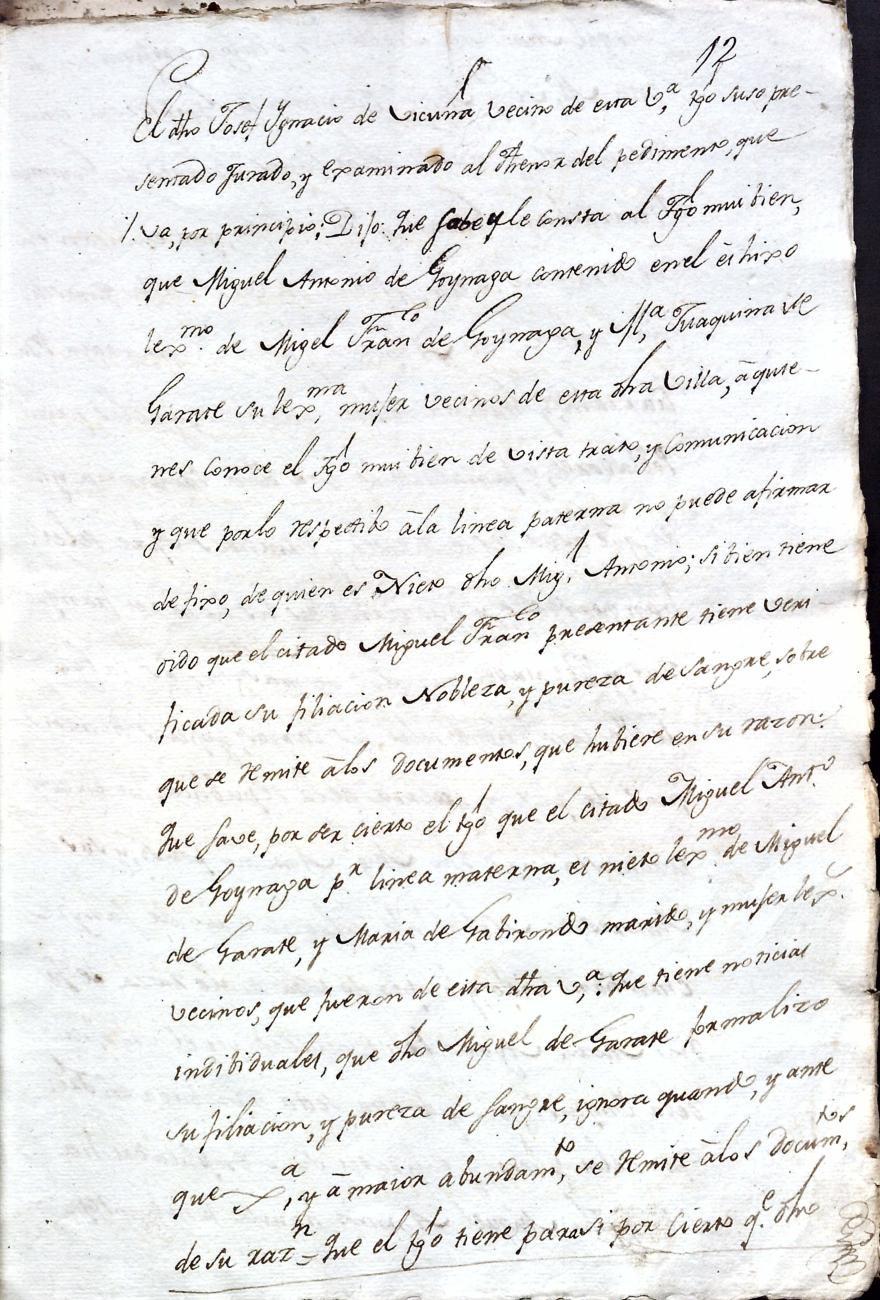 12
El dho Josef Ygnacio de Vicuña vecino de esta V.ª tgo suso pre-
sentado Jurado, y examinado al thenor del pedimento, que
1. va, por principio; Dijo: Que sabe y le consta al Tgo mui bien,
que Miguel Antonio de Goynaga contenido en el es hixo
lexmo. de Migel Franco de Goynaga, y M.ª Juaquina de
Garate su lexma, mujer vecinos de esta dha Villa, à quie-
nes conoce el tgo mui bien de vista trato, y Comunicacion
y que por lo respectibo àla linea paterna no puede afirmar
de fixo, de quien es Nieto dho Migl. Antonio; si bien tiene
oido que el citado Miguel Franco presentante tiene veri-
ficada su filiacion Nobleza, y pureza de sangre, sobre
que se remite àlos documentos, que hubiere en su razon.
Que save, por ser cierto el tgo que el citado Miguel Anto
de Goynaga pr linea materna, es nieto lexmo de Miguel
de Garate, y Maria de Gabirondo marido, y mujer lex.
vecinos, que fueron de esta dha V.ª: Que tiene noticias
indibiduales, que dho Miguel de Garate formalizo
su filiacion, y pureza de sangre, ignora quando, y ante
que xa, y à maior abundamto, se remite àlos documtos,
de su razn = Que el tgo tiene para si por cierto qe. dho